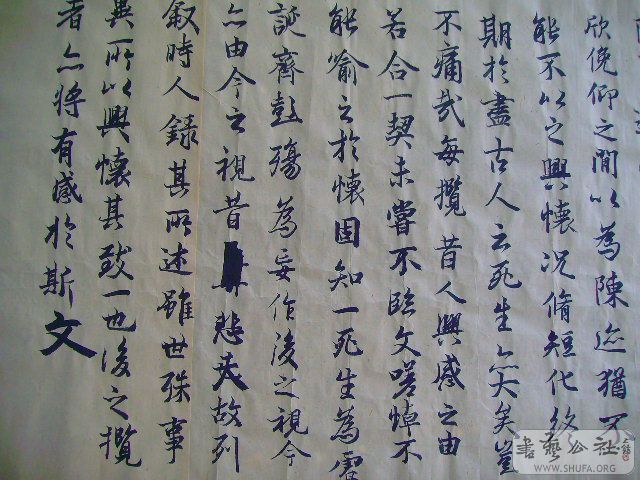 欣俛仰之間以為陳迹猶不
能不以之興懷況脩短化終
期於盡古人云死生亦大矣豈
不痛哉每攬昔人興感之由
若合一契未嘗不臨文嗟悼不
能喻之於懷固知一死生為虛
誕齊彭殤為妄作後之視今
亦由今之視昔悲夫故列
叙時人錄其所述雖世殊事
異所以興懷其致一也後之攬
者亦將有感於斯文
書藝公社
WWW.SHUFA.ORG